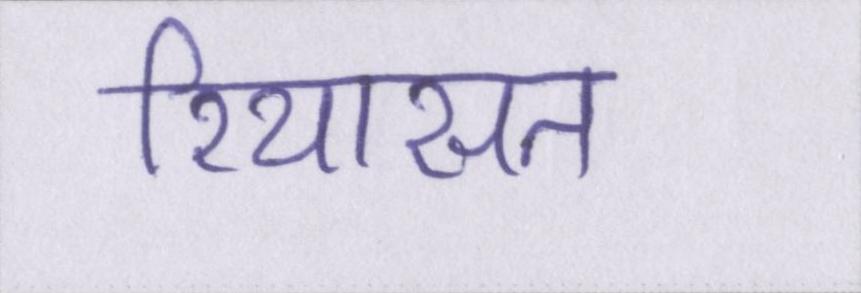 रियासत